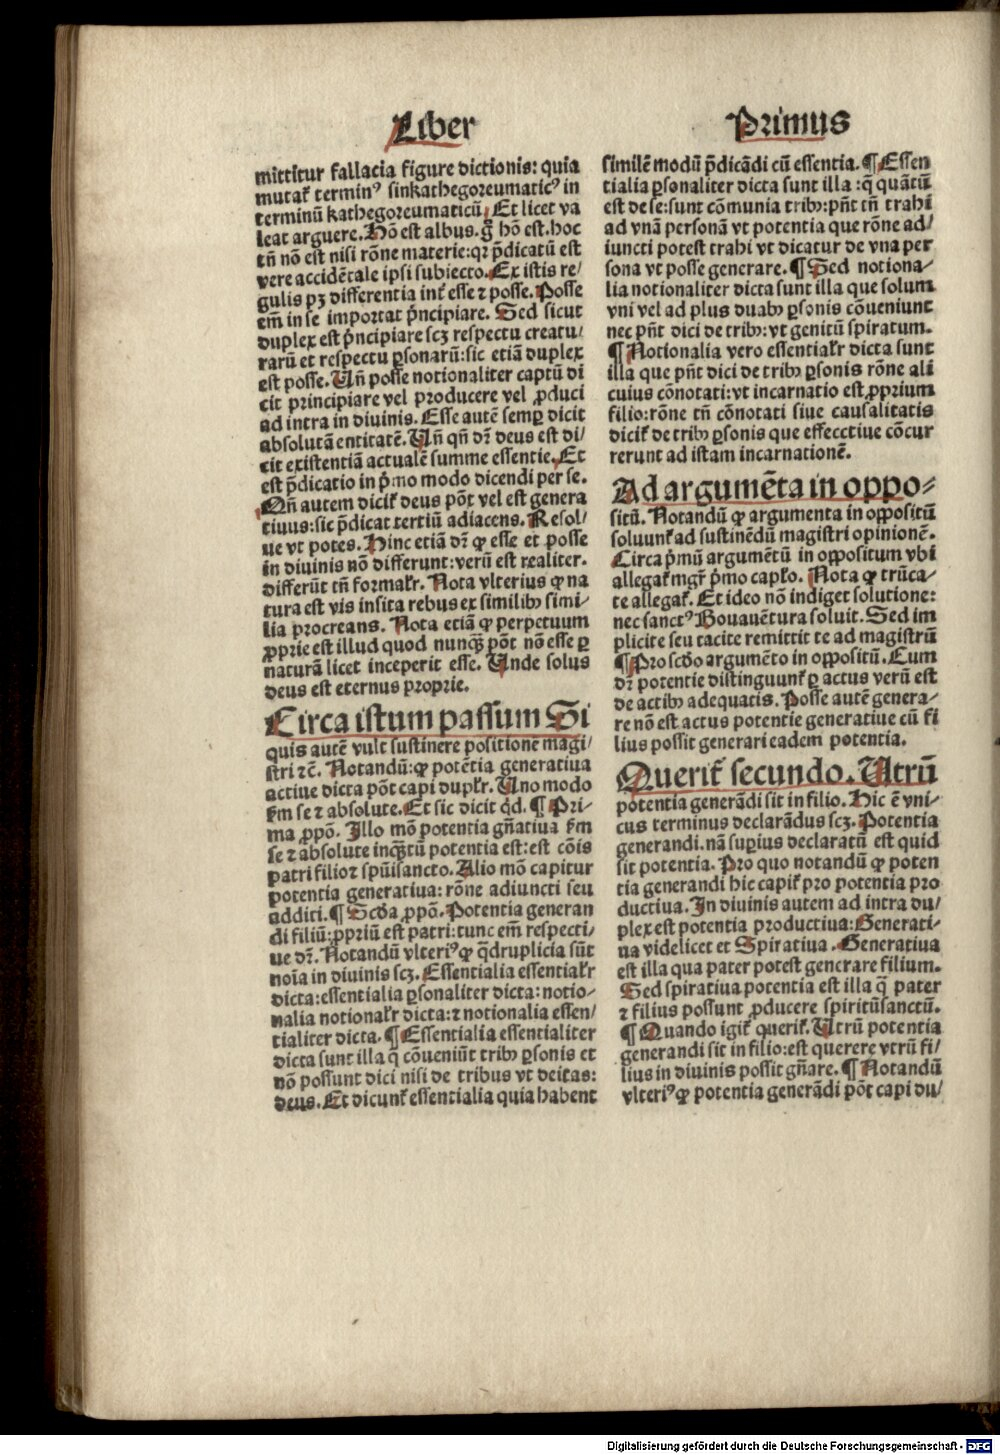 Liber
Primus
mittitur fallacia figure dictionis: quia
mutat᷑ terminꝰ sinkathegoreumaticꝰ in
terminū kathegoreumaticū. Et licet va
leat arguere. Hō est albus. g̊ hō est. hoc
tn̄ nō est nisi rōne materie: qꝛ p̄dicatū est
vere accidētale ipsi subiecto. Ex istis re/
gulis pꝫ differentia int᷑ esse ⁊ posse. Posse
em̄ in se importat pⁱncipiare. Sed sicut
duplex est pⁱncipiare scꝫ respectu creatu/
rarū et respectu ꝑsonarū: sic etiā duplex
est posse. Un̄ posse notionaliter captū di
cit principiare vel producere vel ꝓduci
ad intra in diuinis. Esse autē semꝑ dicit
absolutā entitatē. Un̄ qn̄ dr̄ deus est di/
cit existentiā actualē summe essentie. Et
est p̄dicatio in pⁱmo modo dicendi per se.
Qn̄ autem dicit᷑ deus pōt vel est genera
tiuus: sic p̄dicat tertiū adiacens. Resol/
ue vt potes. Hinc etiā dr̄ ꝙ esse et posse
in diuinis nō differunt: verū est realiter.
differūt tn̄ formalr̄. Nota vlterius ꝙ na
tura est vis insita rebus ex similibꝫ simi/
lia procreans. Nota etiā ꝙ perpetuum
ꝓprie est illud quod nunqꝫ̄ pōt nō esse ꝑ
naturā licet inceperit esse. Unde solus
deus est eternus proprie.
Circa istum passum Si
quis autē vult sustinere positionē magi/
stri ⁊c̄. Notandū: ꝙ potētia generatiua
actiue dicta pōt capi duplr̄. Uno modo
ẜm se ⁊ absolute. Et sic dicit qd̓. ¶ Pri/
ma ꝓpō. Illo mō potentia gn̄atiua ẜm
se ⁊ absolute inqꝫ̄tū potentia est: est cōis
patri filio ⁊ spūisancto. Alio mō capitur
potentia generatiua: rōne adiuncti seu
additi. ¶ Scd̓a ꝓpō. Potentia generan
di filiū: ꝓpriū est patri: tunc em̄ respecti/
ue dr̄. Notandū vlteriꝰ ꝙ q̄druplicia sūt
noīa in diuinis scꝫ. Essentialia essentialr̄
dicta: essentialia ꝑsonaliter dicta: notio/
nalia notionalr̄ dicta: ⁊ notionalia essen/
tialiter dicta. ¶ Essentialia essentialiter
dicta sunt illa q̄ cōueniūt tribꝫ ꝑsonis et
nō possunt dici nisi de tribus vt deitas:
deus. Et dicunt᷑ essentialia quia habent
similē modū p̄dicādi cū essentia. ¶ Essen
tialia ꝑsonaliter dicta sunt illa: q̄ quātū
est de se: sunt cōmunia tribꝫ: pn̄t tn̄ trahi
ad vnā personā vt potentia que rōne ad/
iuncti potest trahi vt dicatur de vna per
sona vt posse generare. ¶ Sed notiona/
lia notionaliter dicta sunt illa que solum
vni vel ad plus duabꝫ ꝑsonis cōueniunt
nec pn̄t dici de tribꝫ: vt genitū spiratum.
¶ Notionalia vero essentialr̄ dicta sunt
illa que pn̄t dici de tribꝫ ꝑsonis rōne ali
cuius cōnotati: vt incarnatio est ꝓprium
filio: rōne tn̄ cōnotati siue causalitatis
dicit᷑ de tribꝫ ꝑsonis que effecctiue cōcur
rerunt ad istam incarnationē.
Ad argumēta in oppo⸗
sitū. Notandū ꝙ argumenta in oppositū
soluunt᷑ ad sustinēdū magistri opinionē.
Circa pⁱmū argumētū in oppositum vbi
allegat᷑ mgr̄ pⁱmo caplo. Nota ꝙ trūca⸗
te allegat᷑. Et ideo nō indiget solutione:
nec sanctꝰ Bonauētura soluit. Sed im
plicite seu tacite remittit te ad magistrū
¶ Pro scd̓o argumēto in oppositū. Cum
dr̄ potentie distinguunt᷑ ꝑ actus verū est
de actibꝫ adequatis. Posse autē genera⸗
re nō est actus potentie generatiue cū fi
lius possit generari eadem potentia.
Querit᷑ secundo. Utrū
potentia generādi sit in filio. Hic ē vni⸗
cus terminus declarādus scꝫ. Potentia
generandi. nā suꝑius declaratū est quid
sit potentia. Pro quo notandū ꝙ poten
tia generandi hic capit᷑ pro potentia pro
ductiua. In diuinis autem ad intra du/
plex est potentia productiua: Generati⸗
ua videlicet et Spiratiua. Generatiua
est illa qua pater potest generare filium.
Sed spiratiua potentia est illa q̄ pater
⁊ filius possunt ꝓducere spiritūsanctū.
¶ Quando igit᷑ querit᷑. Utrū potentia
generandi sit in filio: est querere vtrū fi/
lius in diuinis possit gn̄are. ¶ Notandū
vlteriꝰ ꝙ potentia generādi pōt capi du/
Digitalisierung gefördert durch die Deutsche Forschungsgemeinschaft - DFG